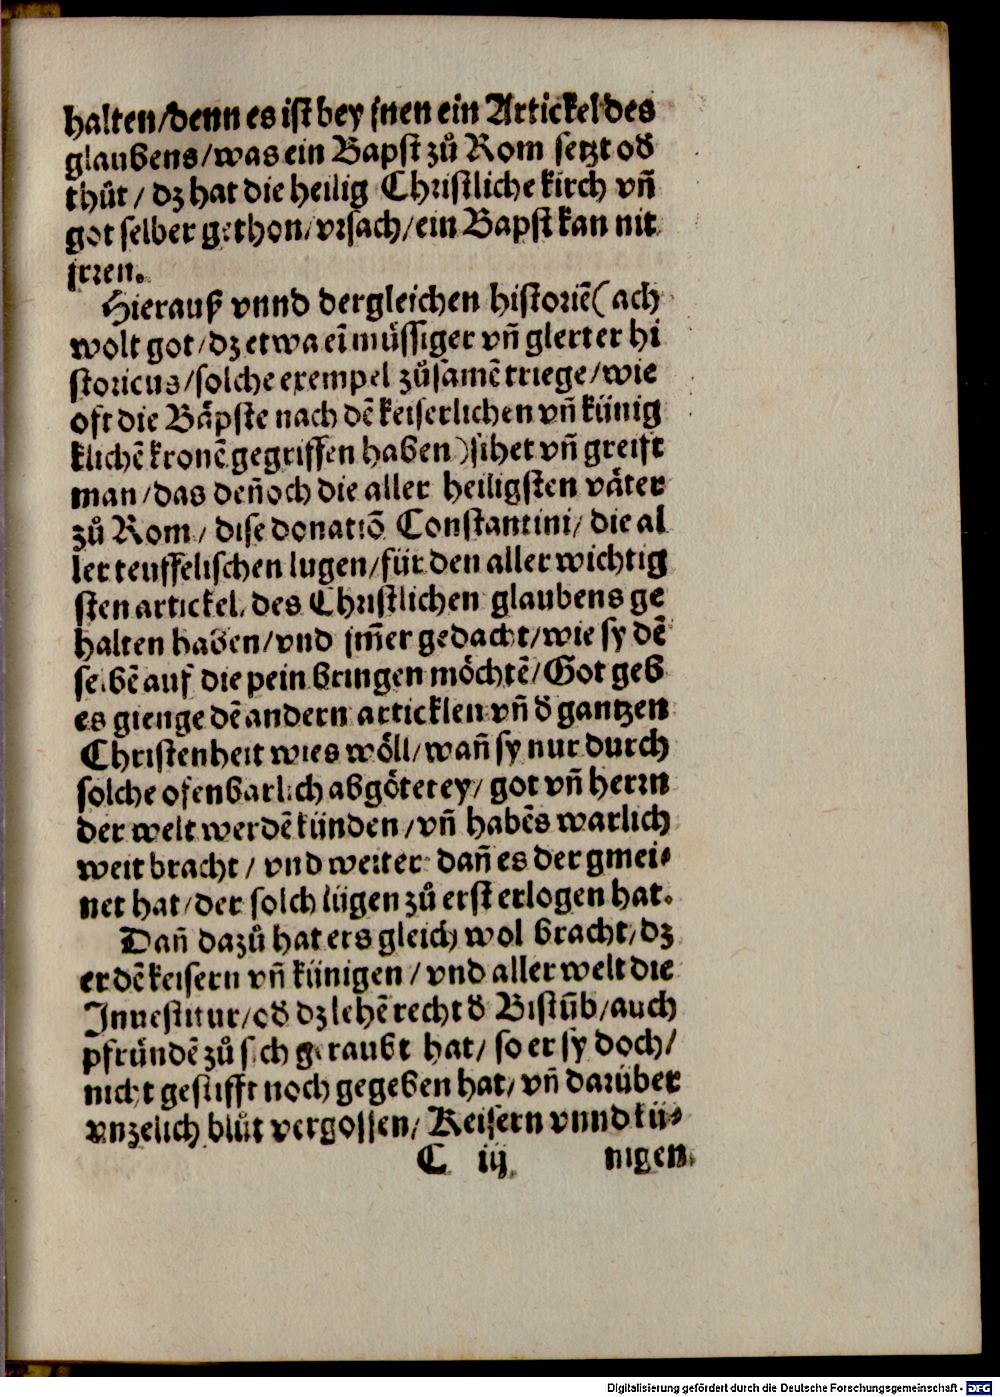 halten/denn es ist bey jnen ein Artickel des
glaubens/was ein Bapst zů Rom setzt oð
thůt/ dz hat die heilig Christliche kirch vñ
got selber gethon/vrsach/ein Bapst kan nit
jrren.
Hierauß vnnd dergleichen historiẽ(ach
wolt got/dz etwa eĩ müssiger vñ glerter hi
storicus/solche exempel zůsamẽ triege/wie
oft die Bäpste nach dẽ keiserlichen vñ künig
klichẽ kronẽ gegriffen haben)sihet vñ greift
man/das deñoch die aller heiligsten väter
zů Rom/ dise donatiõ Constantini/ die al
ler teuffelischen lugen/für den aller wichtig
sten artickel, des Christlichen glaubens ge
halten haben/vnd jm̃er gedacht/wie sy dẽ
selbẽ auf die pein bringen möchtẽ/Got geb
es gienge dẽ andern articklen vñ ð gantzen
Christenheit wies wöll/wañ sy nur durch
solche ofenbarlich abgöterey/ got vñ herrn
der welt werdẽ künden/vñ habẽs warlich
weit bracht/ vnd weiter dañ es der gmei⸗
net hat/der solch lügen zů erst erlogen hat.
Dañ dazů hat ers gleich wol bracht/dz
er dẽ keisern vñ künigen/vnd aller welt die
Jnuestitur/oð dz lehẽ recht ð Bistũb/auch
pfründẽ zů sich geraubt hat/ so er sy doch/
nicht gestifft noch gegeben hat/ vñ darüber
vnzelich blůt vergossen/ Keisern vnnd kü⸗
C iij nigen
Digitalisierung gefördert durch die Deutsche Forschungsgemeinschaft - DFG